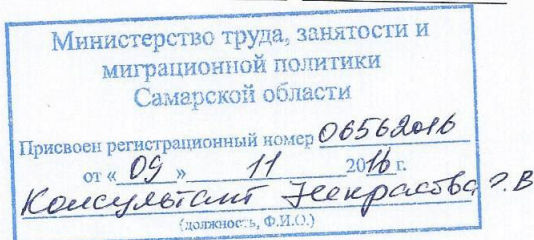 Министерство труда, занятости и
миграционной политики
Самарской области
Присвоен регистрационный номер 06562016
от « 09 » 11 2016 г.
Консультант Некрасова Г.В
(должность, Ф.И.О.)